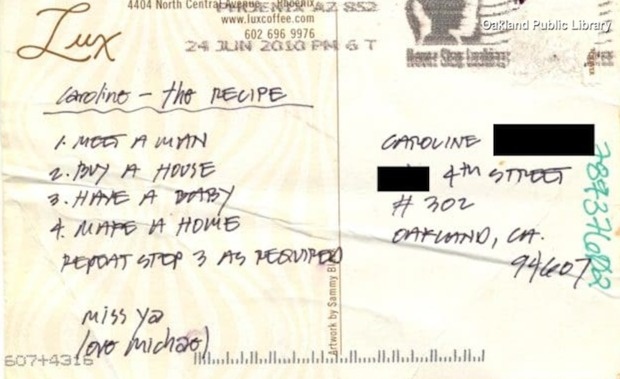 4404 North Central Avenue Phoenix
PHOENIX AZ 852
www.luxcoffee.com
602 696 9976
24 JUN 2010 PM 6 T
Lux
Oakland Public Library
Never Stop
Caroline – the RECIPE
1. MEET A MAN
2. BUY A HOUSE
3. HAVE A BABY
4. MAKE A HOME
REPEAT STEP 3 AS REQUIRED
MISS YA
love michael
CAROLINE
4TH STREET
# 302
OAKLAND, CA.
94607
Artwork by Sammy
607+4316